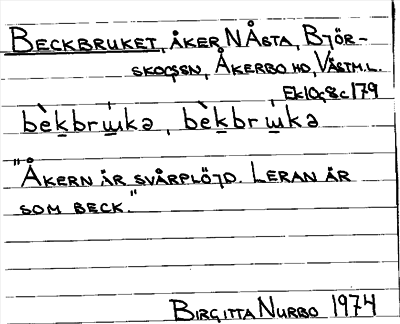 BECKBRUKET, ÅKER NÅSTA, BJÖR-
SKOGSSN, ÅKERBO HD, VÄSTM.L.
Ek 10g8c 179
bèkbrɯ̀kə, bèkbrɯ̀kə
"ÅKERN ÄR SVÅRPLÖJD. LERAN ÄR
SOM BECK."
BIRGITTA NURBO 1974